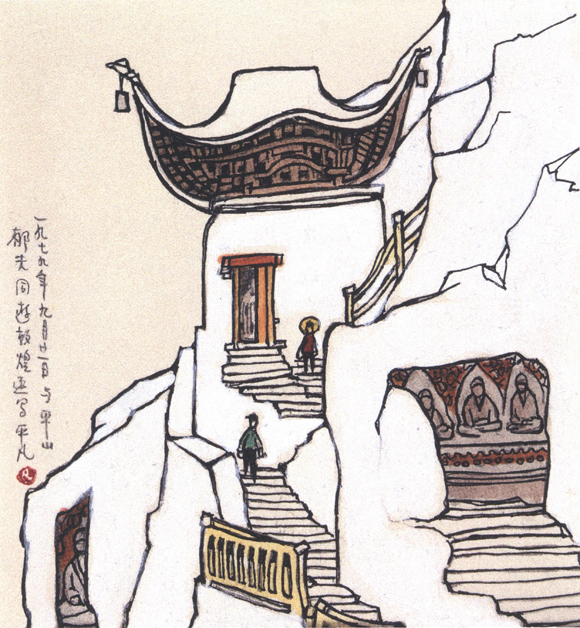 一九七九年九月廿一日与平山
郁夫同遊敦煌速写平凡
凡